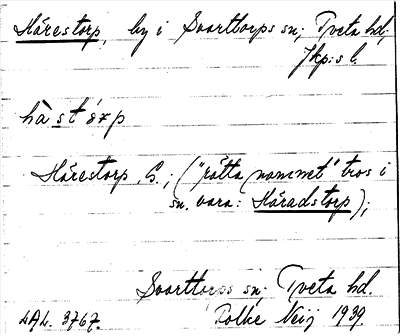 Hårestorp, by i Svarttorps sn; Tveta hd;
Jkp:s l.
hå̀ st órp
Hårestorp, G.; ("rätta nammet" tros i
sn. vara: Häradstorp);
Svarttorps sn; Tveta hd.
LAL. 3767. Folke Neij 1939